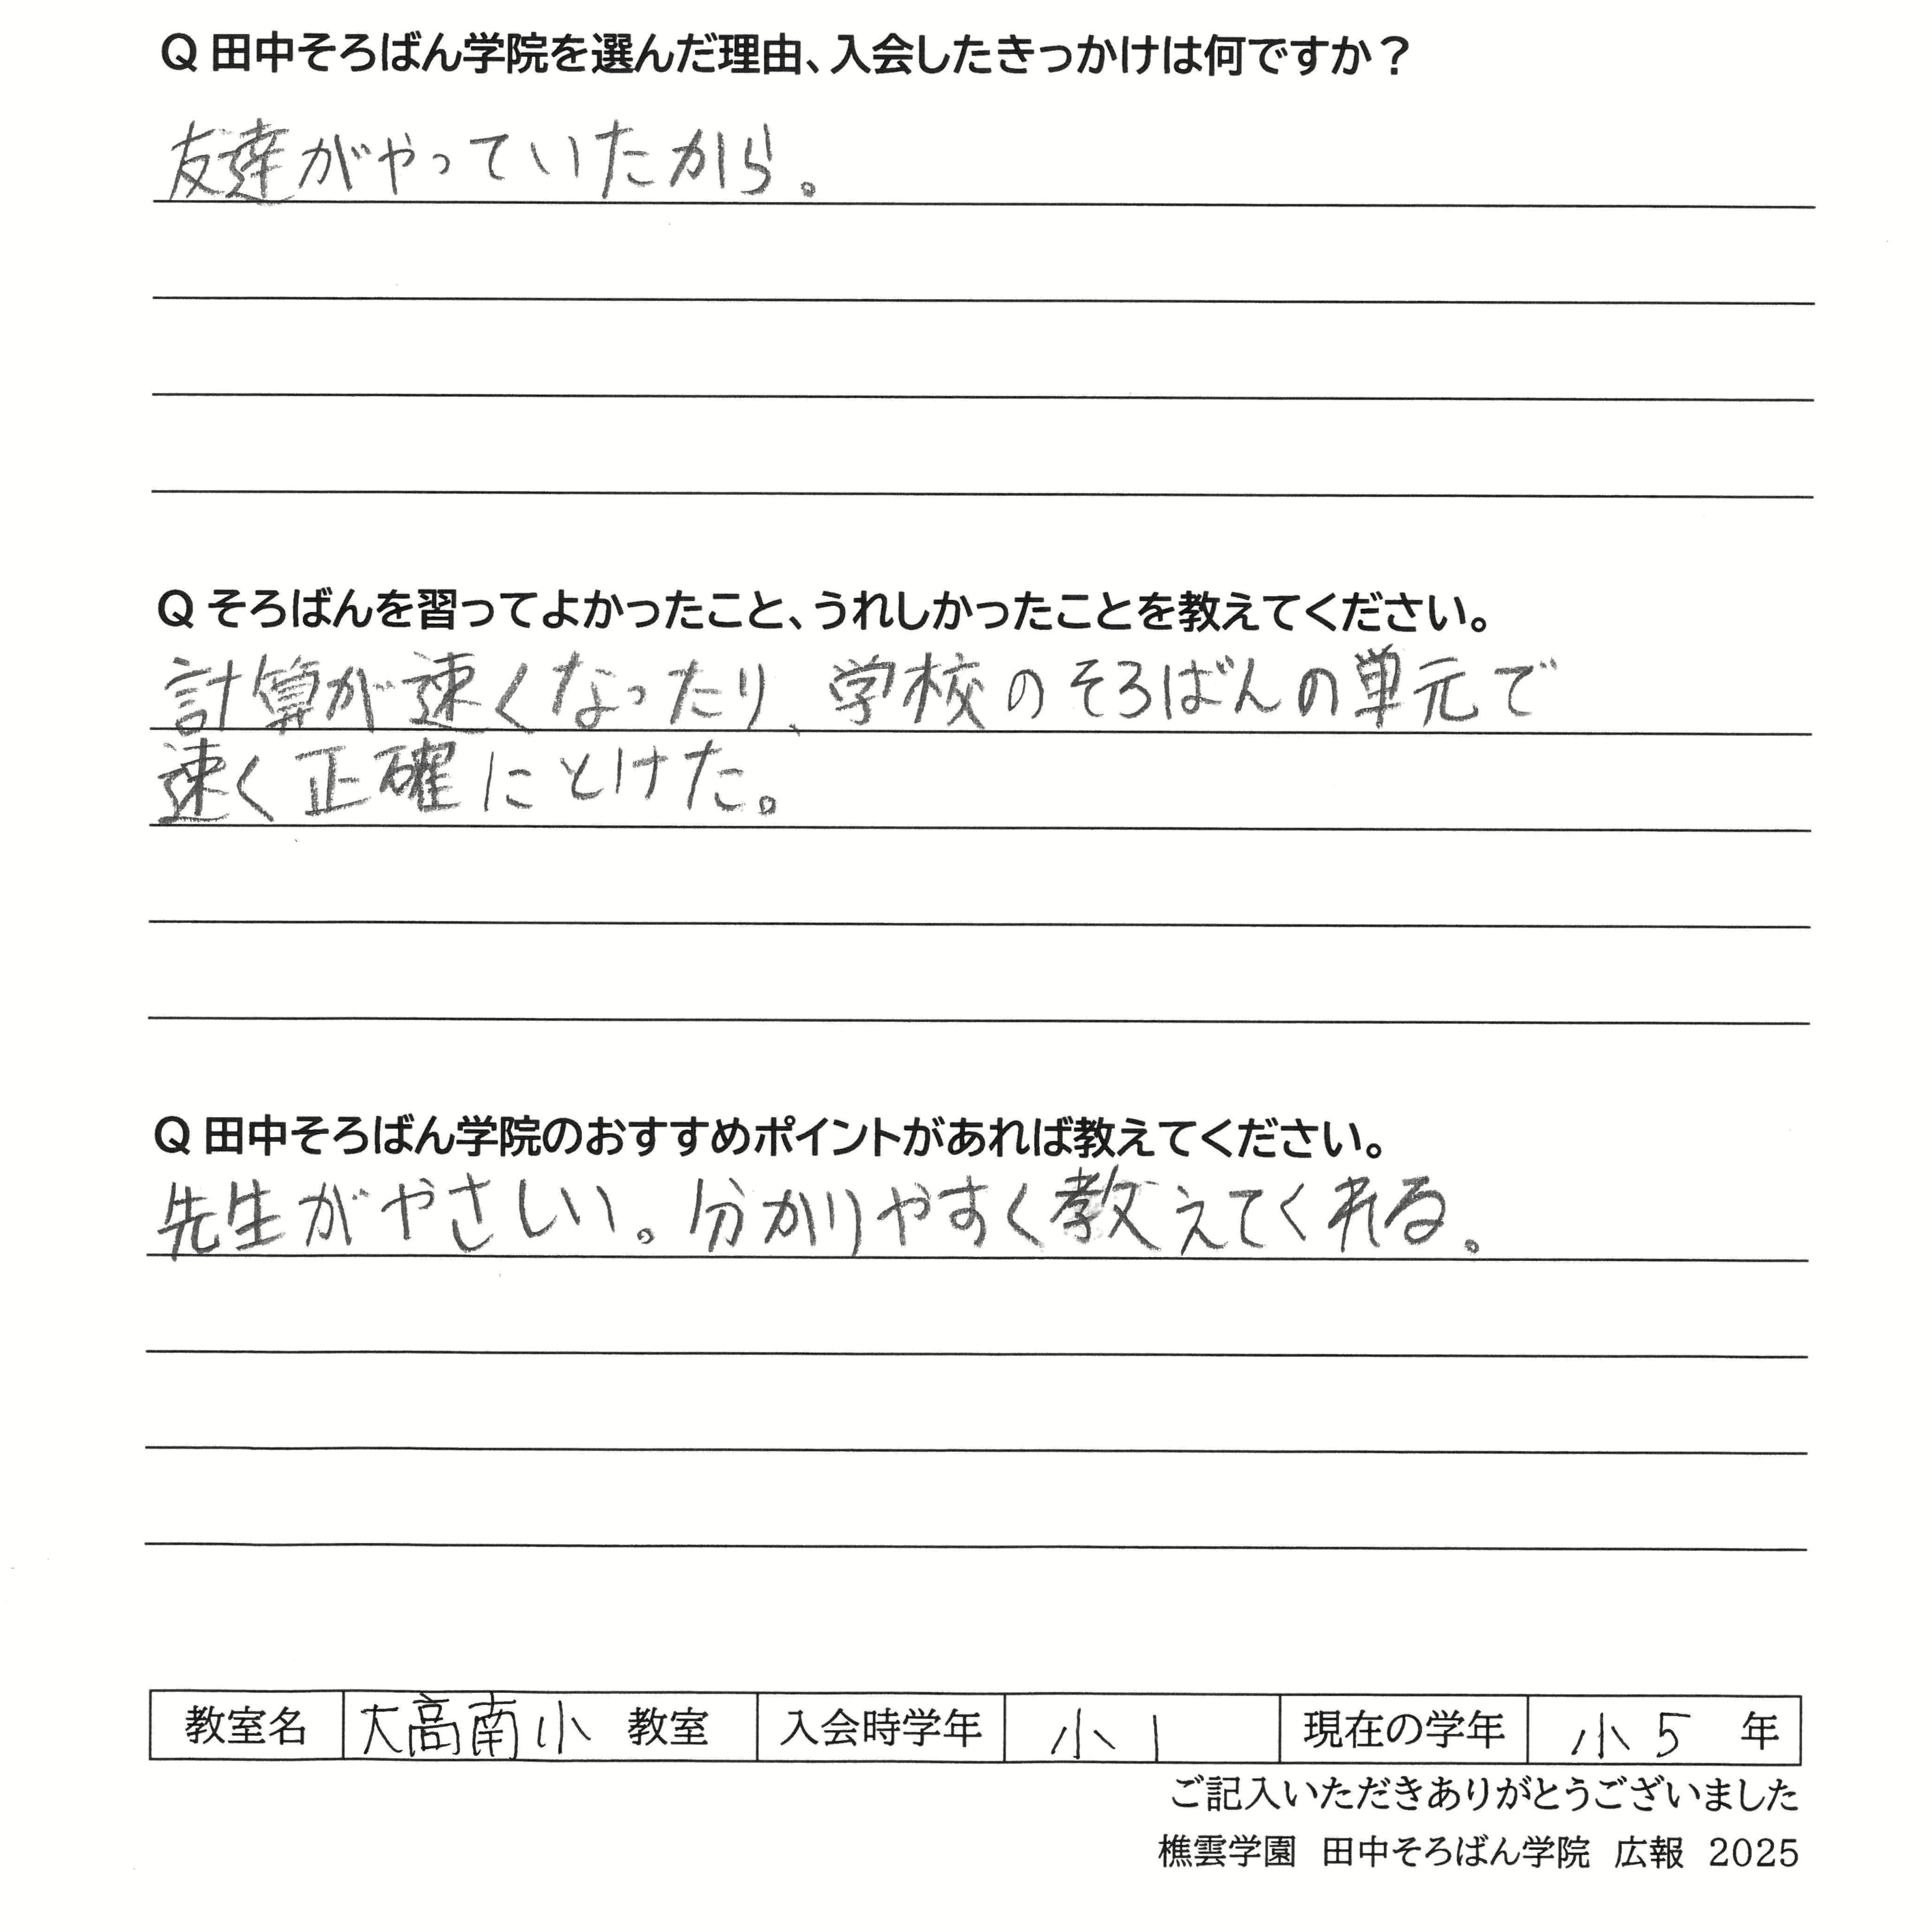 Q 田中そろばん学院を選んだ理由、入会したきっかけは何ですか？
友達がやっていたから。
Q そろばんを習ってよかったこと、うれしかったことを教えてください。
計算が速くなったり、学校のそろばんの単元で
速く正確にとけた。
Q 田中そろばん学院のおすすめポイントがあれば教えてください。
先生がやさしい。分かりやすく教えてくれる。
教室名 大高南小 教室 入会時学年 小1 現在の学年 小5 年
ご記入いただきありがとうございました
樵雲学園 田中そろばん学院 広報 2025